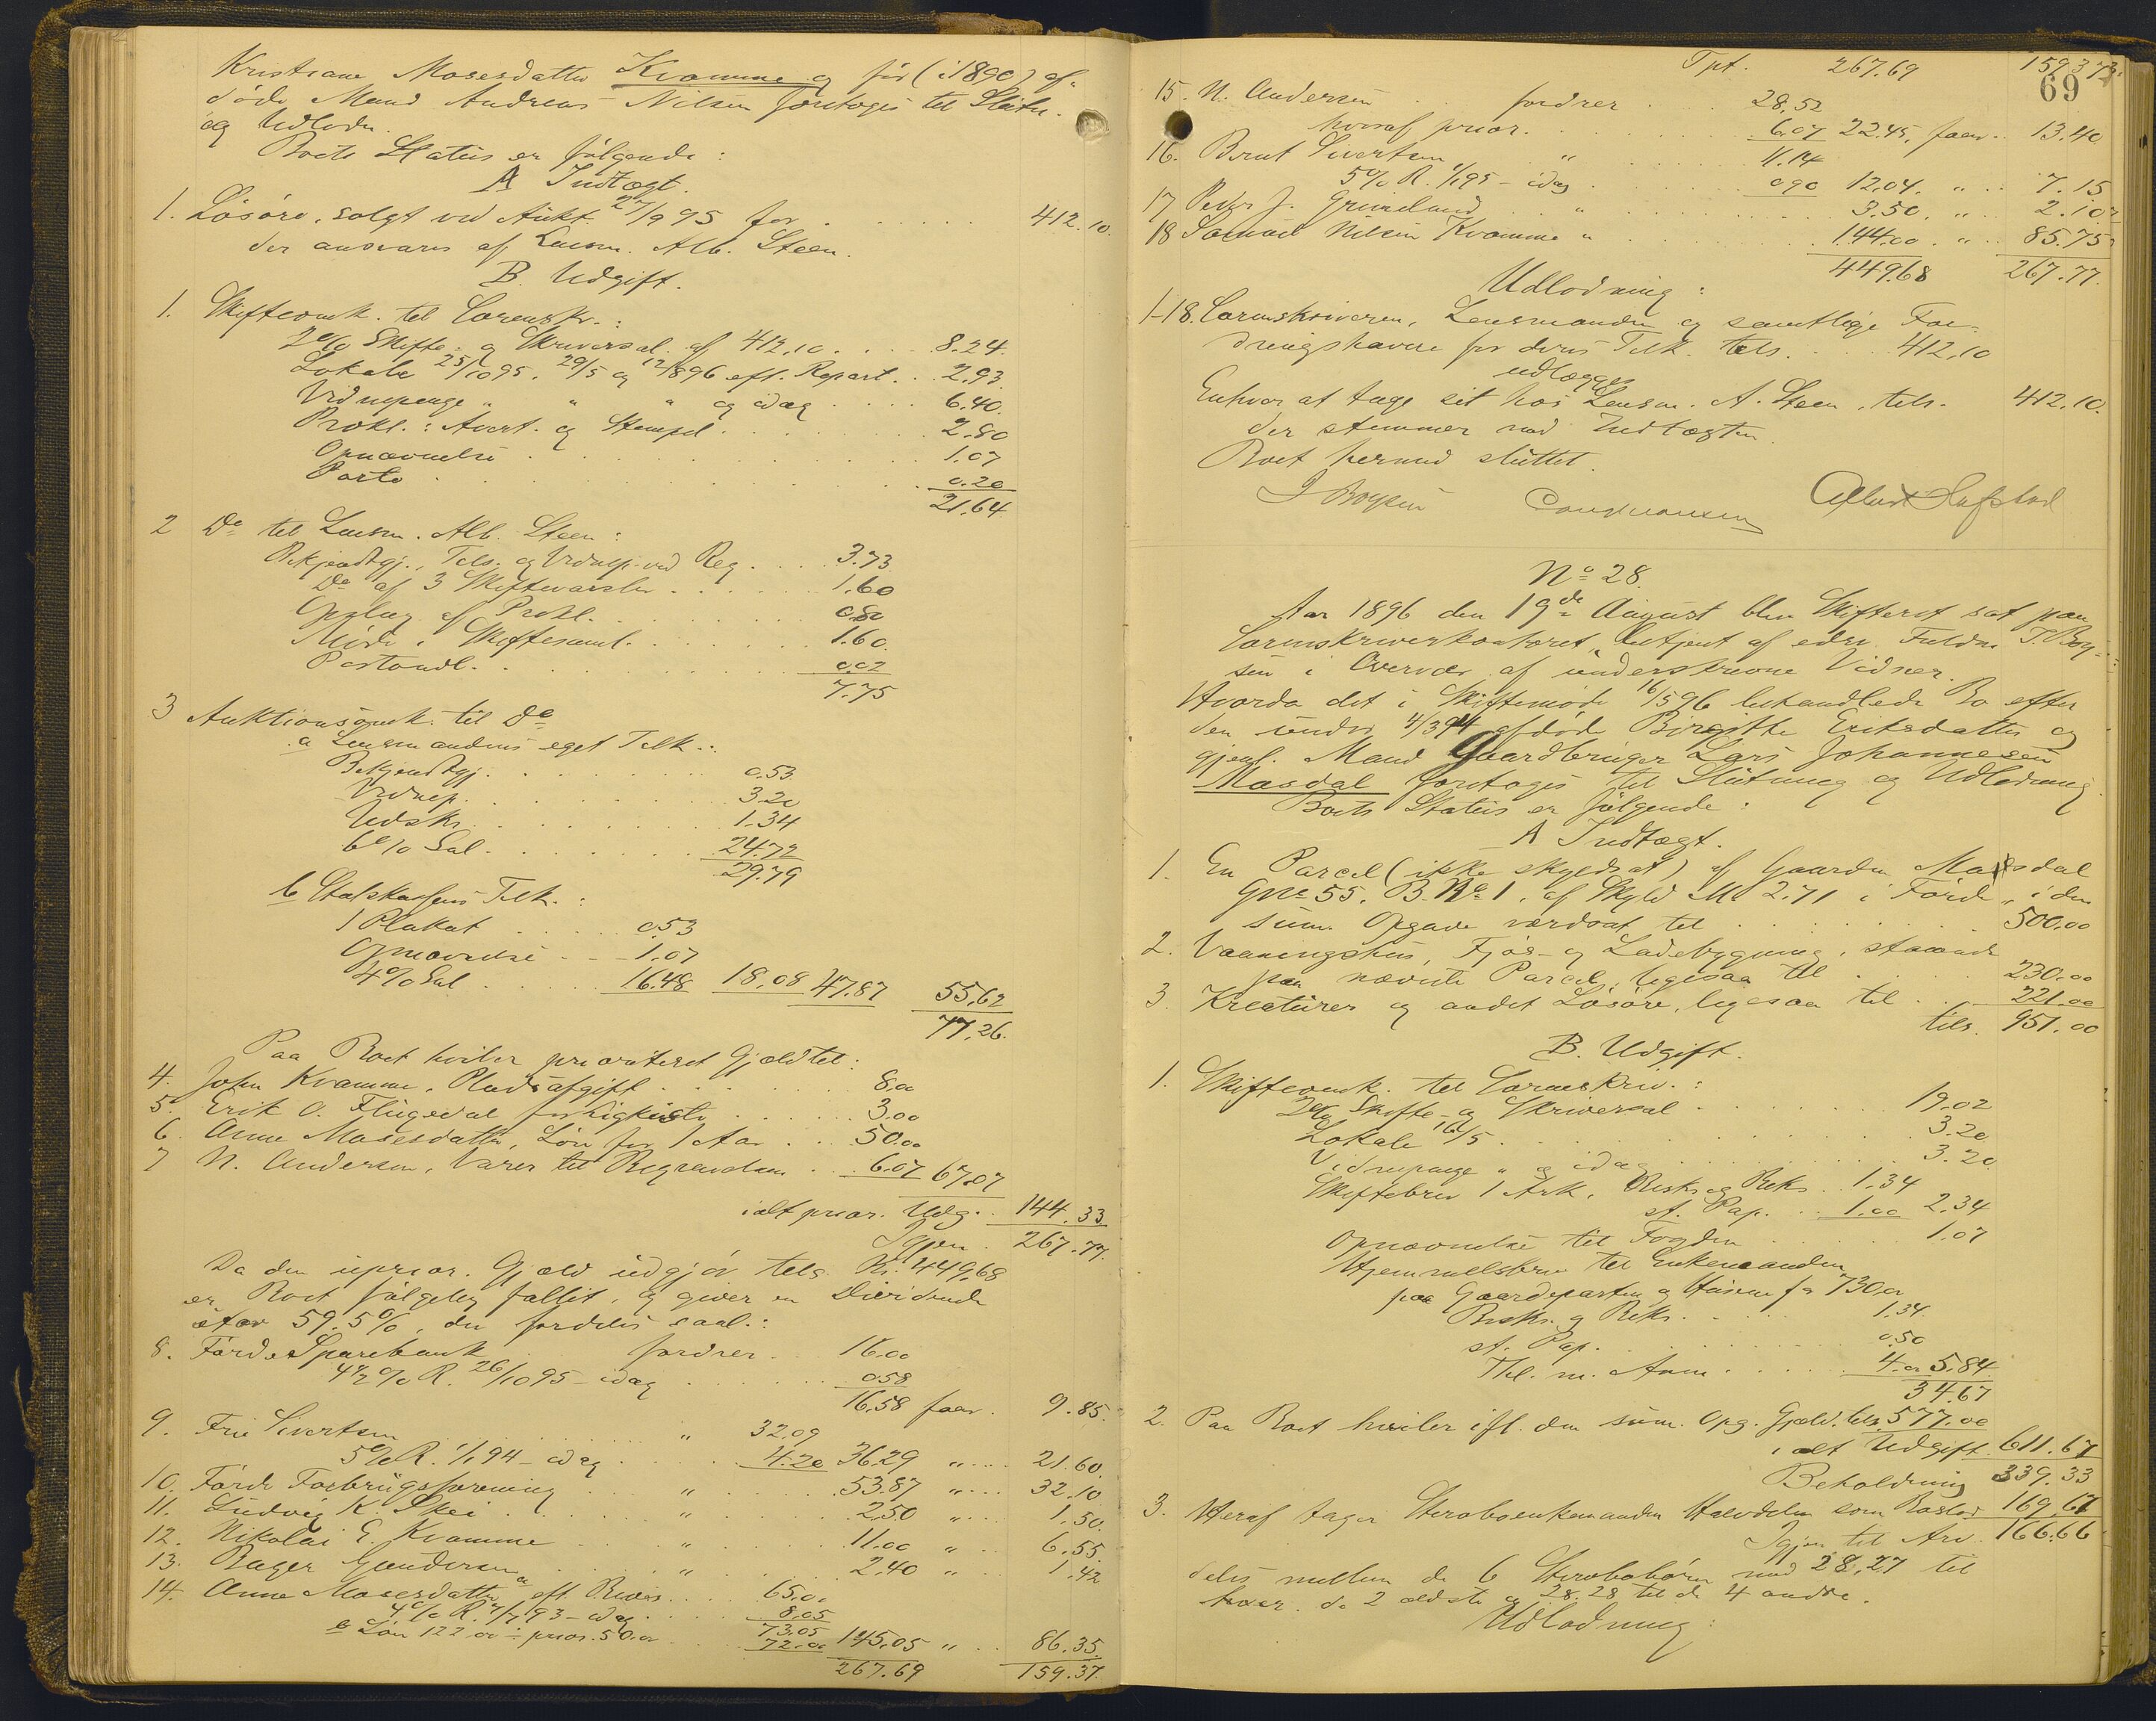 Kristiane Mosesdatter Kvamme og før (i 1890) af-
døde Mand Andreas Nilsen foretoges til Slutn.
og Udlodn.
Boets Status er følgende:
A Indtægt.
1. Løsøre, solgt ved Aukt. 27/9 95 for . . . . . 412.10.
der ansvares af Lensm. Alb. Steen.
B. Udgift.
1. Skifteomk. til Sorenskr.:
2% Skifte- og Skriversal. af 412,10 . . . . 8.24.
Lokale 25/10 95, 29/5 og 12/8 96 eft. Repart. . . 2.93.
Vidnepenge " " " og idag . . . . 6.40.
Prokl.: Avert. og Stempel . . . . 2.80
Opnævnelse . . . . 1.07
Porto . . . . 0.20
21.64
2 Do til Lensm. Alb. Steen:
Bekjendtgj., Tels. og Vidnep. ved Reg. . . . 3.73
Do af 3 Skiftevarsler . . . . 1.60
Opslag af Prokl. . . . . 0.80
Møde i Skiftesaml. . . . . 1.60.
Postandl. . . . . 0.02
7.75
3 Auktionsomk. til Do
a Lensmandens eget Tilk.:
Bekjendtgj. . . . . 0.53
Vidnep. . . . . 3.20
Udskr. . . . . 1.34
6% Sal. . . . . 24.72
29.79
b Statskassens Tilk.:
1 Plakat . . . . 0.53
Opnævnelse . . . 1.07
4% Sal . . . . 16.48 18.08 47.87 55,62
77,26.
Paa Boet hviler prioriteret Gjæld til:
4. John Kvamme, Pladsafgift . . . . 8.00
5. Erik O. Flugedal for Ligkiste . . . 3.00
6. Anne Mosesdatter, Løn for 1 Aar . . . 50.00
7 N. Andersen, Varer til Begravelsen . . . 6.07 67.07
ialt prior. Udg. . 144.33
Igjen . 267.77.
Da den uprior. Gjæld udgjør tels. Kr. 449,68
er Boet følgelig fallit, og giver en Dividende
stor 59.5%, der fordeles saal.:
8. Førde Sparebank fordrer . 16.00
4½% R. 26/10 95 - idag . . . . 0.58
16.58 faar . 9.85.
9. Fru Sivertsen . . . " 32.09
5% R. 1/1 94 - idag . . . . 4.20 36.29 " . . . 21.60.
10. Førde Forbrugsforening . . . " . . . 53.87 " . . . 32.10
11. Ludvig K. Skei . . . " . . . 2.50 " . . . 1.50.
12. Nikolai E. Kvamme . . . " . . . 11.00 " . . . 6.55
13. Rager Gundersen . . . " . . . 2.40 " . . . 1.42
14. Anne Mosesdatter a eft. Bevis . . . 65.00
4% R. 7/7 93 - idag . . . 8.05
73.05
b Løn 122.00 ÷ prior. 50.00 . . . 72.00 145.05 " . . 86.35.
267.69 159.37.
Tpt. 267.69 159.37
69
15. N. Andersen . . . fordrer . 28.52
hvoraf prior. . . . . 6.07 22.45, faar . 13.40
16. Brnt Sivertsen " . . . 11.14
5% R. 1/1 95 - idag . . . 0.90 12.04. " . . 7.15
17 Peder J. Grimeland . . . " . . . 3.50. " . . 2.10
18 Samuel Nilsen Kvamme " . . . 144.00. " . . 85.75
449.68 267.77.
Udlodning:
1-18. Sorenskriveren, Lensmanden og samtlige For-
dringshavere for deres Tilk. tels. . . . 412,10
udlægges
Enhver at tage sit hos Lensm. A. Steen, tels. 412,10.
der stemmer med Indtægten.
Boet hermed sluttet.
J Boysen Conr. Hansen Albert Hafstad
No 28.
Aar 1896 den 19de August blev Skifteret sat paa
Sorenskriverkontoret, betjent af edsv. Fuldm. J. Boy-
sen i Overvær af underskrevne Vidner.
Hvorda det i Skiftemøde 16/5 96 behandlede Bo efter
den under 4/3 94 afdøde Birgithe Eriksdatter og
gjenl. Mand Gaardbruger Lars Johannesen
Masdal foretoges til Slutning og Udlodning.
Boets Status er følgende:
A Indtægt.
1. En Parcel (ikke skyldsat) af Gaarden Maasdal
Gno 55. B.No 1, af Skyld M 2.71 i Førde, i den
sum. Opgave værdsat til . . . . 500,00
2. Vaaningshus, Fjøs- og Ladebygning, staaende
paa nævnte Parcel, ligesaa til . . . 230,00
3. Kreaturer og andet Løsøre, ligesaa til . . . 221.00
tils. 951.00
B. Udgift.
1. Skifteomk. til Sorenskriv.:
2% Skifte- og Skriversal . . . . 19.02
Lokale 16/5 . . . . 3.20
Vidnepenge " og idag . . . . 3.20
Skiftebrev 1 Ark, Beskr. og Reks . 1.34
st. Pap. . . 1.00 2.34
Opnævnelse til Fogden . . . . 1.07
Hjemmelsbrev til Enkemanden
paa Gaardeparten og Husene for 730,00
Beskr. og Reks. . . . 1.34.
st. Pap. . . . . 0.50
Thl. m. Anm. . . . . 4.00 5.84
34.67
2. Paa Boet hviler ifl. den sum. Opg. Gjæld, tels. 577.00
ialt Udgift 611.67
Beholdning 339.33
3. Heraf tager Stervboenkemanden Halvdelen som Boslod 169,67
Igjen til Arv 166.66
deles mellem de 6 Stervbobørn med 28,27 til
hver. de 2 ældste og 28.28 til de 4 andre.
Udlodning: